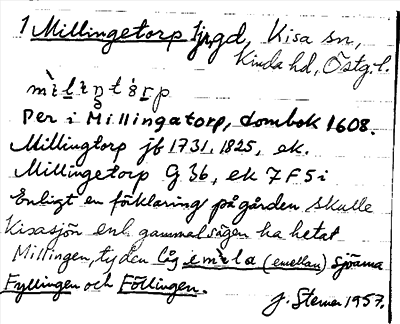 1 Millingetorp hgd, Kisa sn,
Kinda hd, Östg.l.
Per i Millingatorp, dombok 1608.
Millingtorp jb 1731, 1825, ek.
Millingetorp G 36, ek 7F5i
Enligt en förklaring på gården skulle
Kisasjön enl. gammal sägen ha hetat
Millingen, ty den låg emèla (emellan) sjöarna
Fyllingen och Föllingen.
J. Sterner 1957.